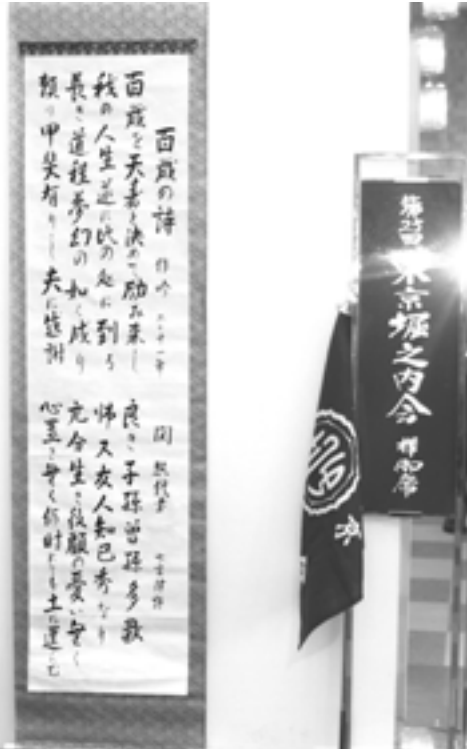 百歳の詩
百歳を天寿と決めて励み来し
我の人生遂に此の処に到る
長き道程夢幻の如く成り
頼り甲斐有りし夫に感謝
良き子孫曽孫多数
師又友人知己秀なり
充分生き後顧の憂い無く
心置き無く何時でも土に還らむ
東京堀之内会